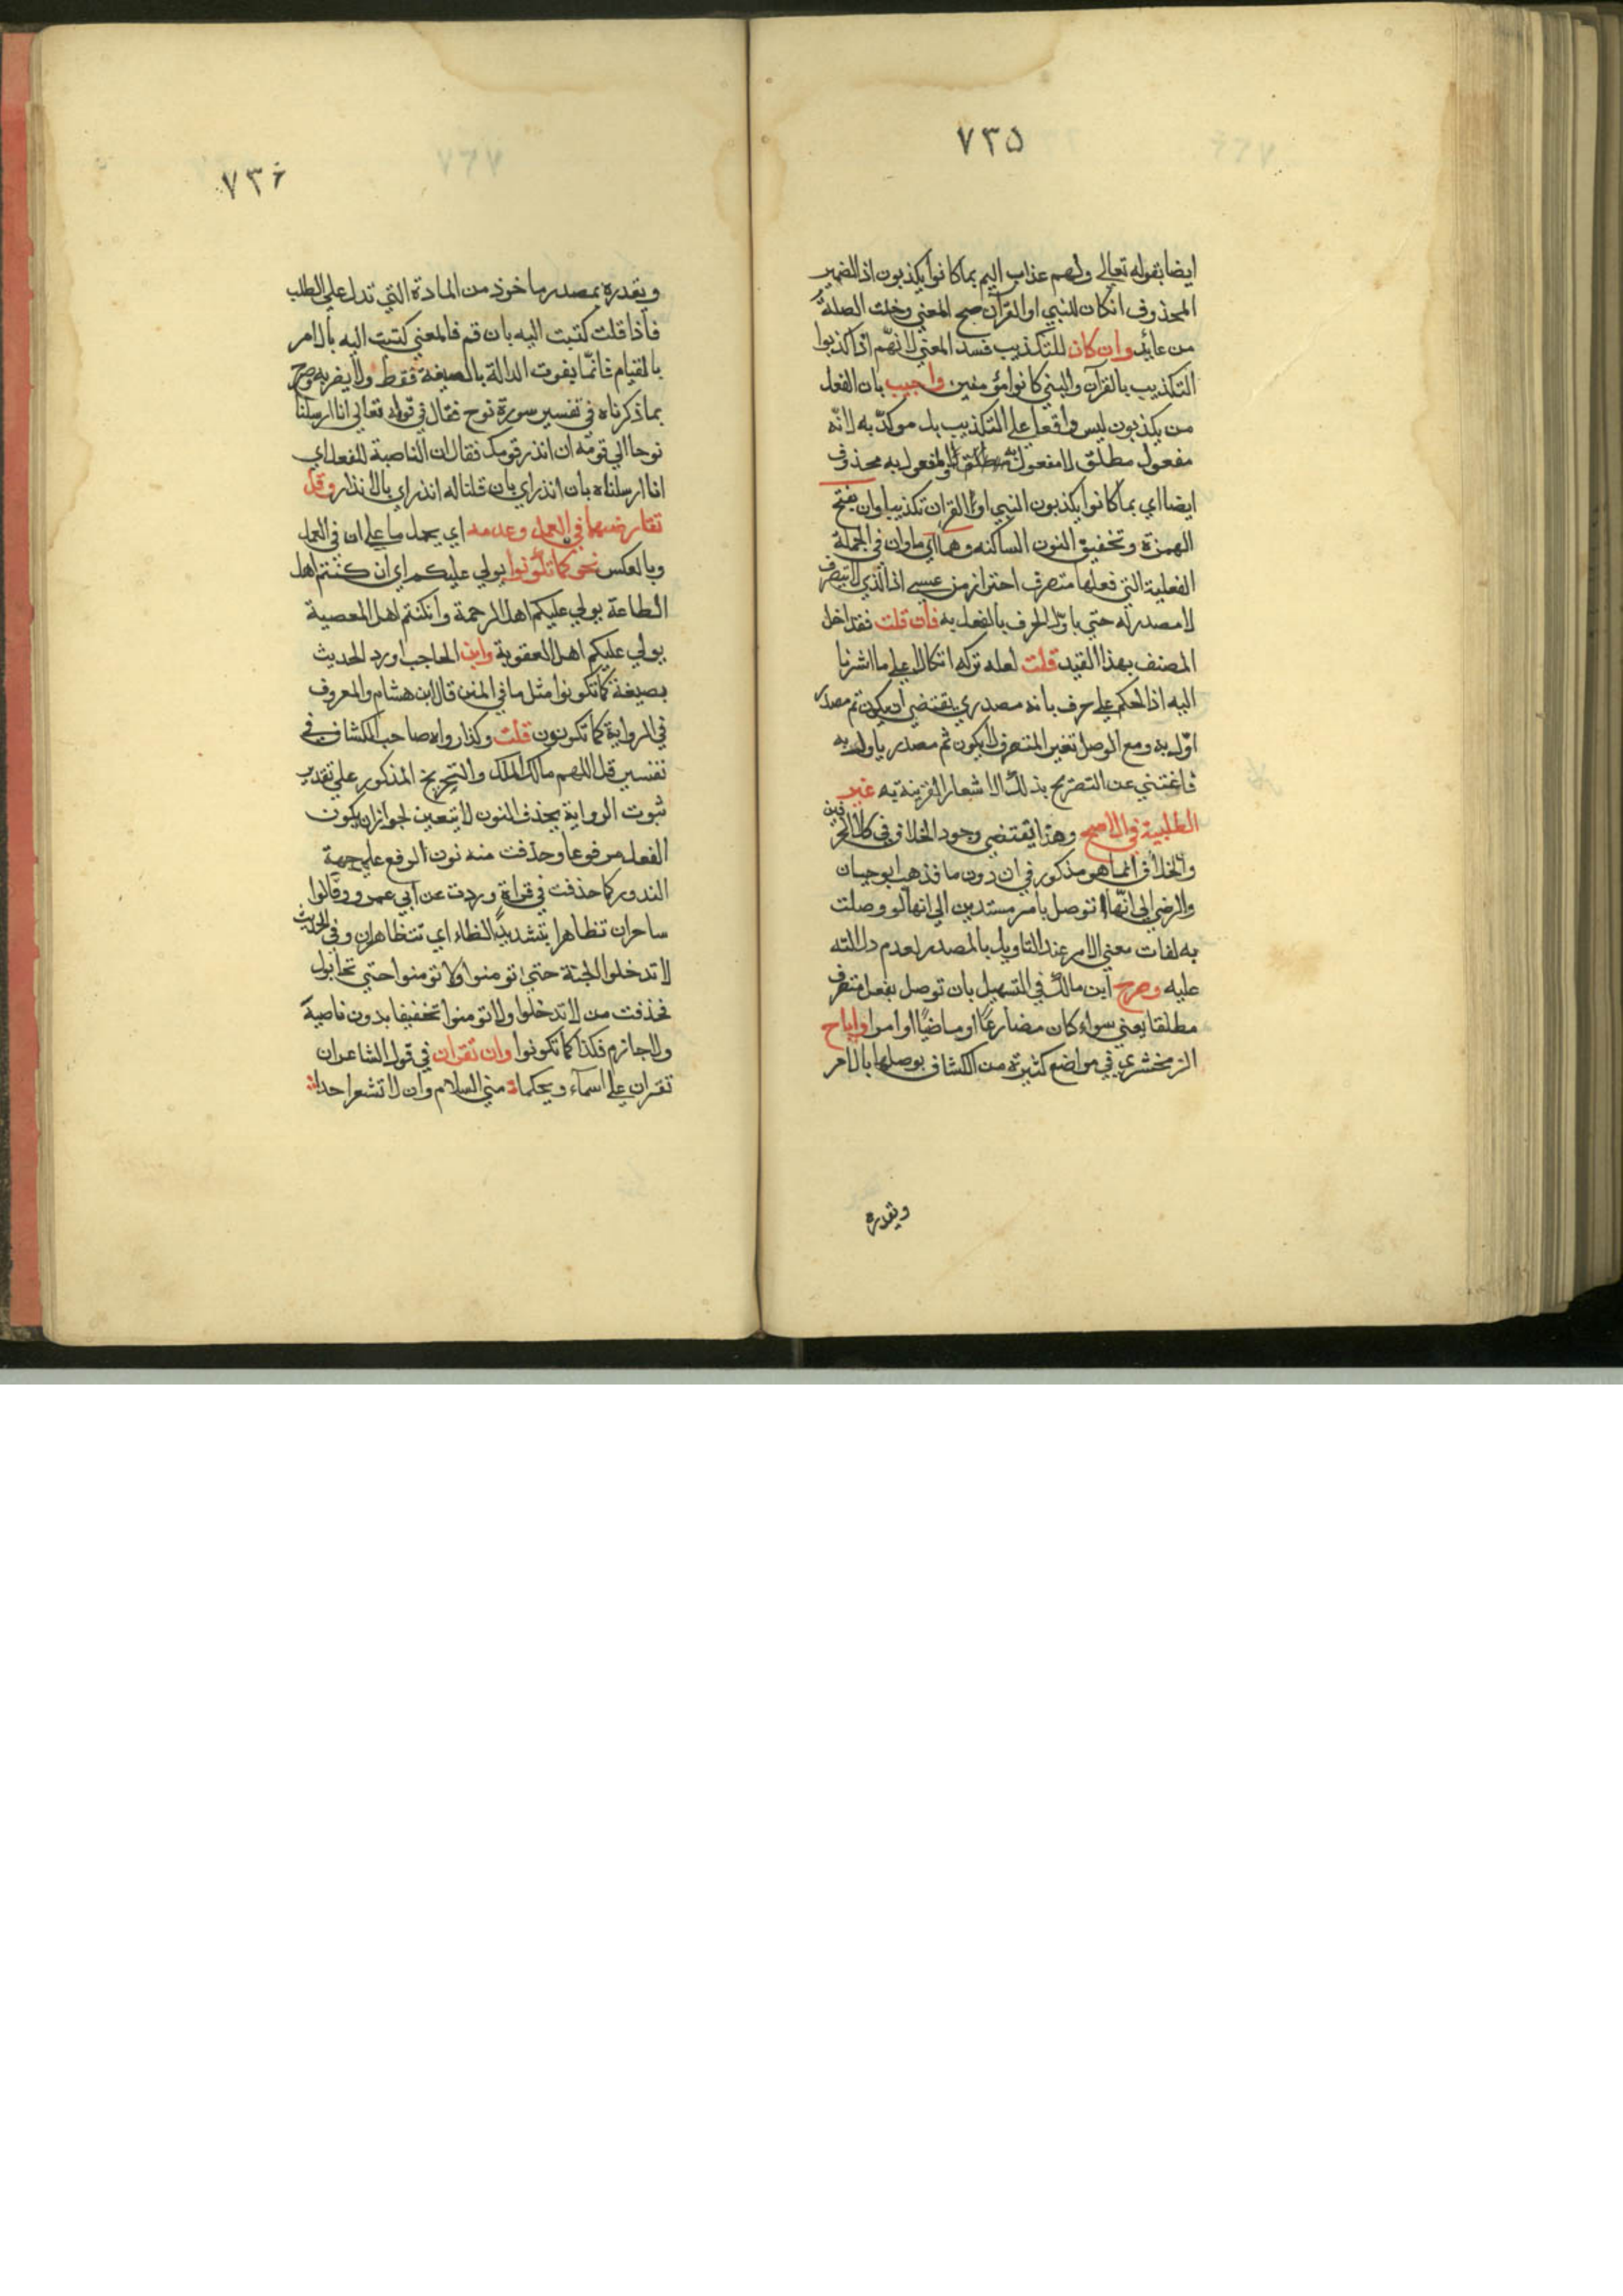 ٧٣٥
ايضا بقوله تعالي ولهم عذاب اليم بما كانوا يكذبون اذ الضمير
المحذوف انكان للنبي او القرآن صح المعني وخلت الصلة
من عائد وان كان للتكذيب فسد المعني لانهم اذا كذبوا
التكذيب بالقرآن والنبي كانوا مؤمنين واجيب بان الفعل
من يكذبون ليس واقعا علي التكذيب بل موكد به لانه
مفعول مطلق لا مفعول به والمفعول به محذوف
ايضا اي بما كانوا يكذبون النبي او القران تكذيبا وان بفتح
الهمزة وتخفيف النون الساكنه وهما اي ما وان في الجملة
الفعلية التي فعلها متصرف احتراز من عسي اذ الذي لا يتصرف
لا مصدر له حتي ياول الحرف بالفعل به فان قلت فقد اخل
المصنف بهذا القيد قلت لعله تركه اتكالا علي ما اشرنا
اليه اذ الحكم علي حرف بانه مصدري يقتضي ان يكون ثم مصدر
اول به ومع الوصل بغير المتصرف لا يكون ثم مصدر ياول به
فاغتني عن التصريح بذلك لاشعار القرينة به غير
الطلبية في الاصح وهذا يقتضي وجود الخلاف في كلا الحرفين
والخلاف انما هو مذكور في ان دون ما فذهب ابو حيان
والرضي الي انها لا توصل بامر مستدلين الي انها لو وصلت
به لفات معني الامر عند التاويل بالمصدر لعدم دلالته
عليه وصرح ابن مالك في التسهيل بان توصل بفعل متصرف
مطلقا يعني سواء كان مضارعًا او ماضيًا او امرا واباح
الزمخشري في مواضع كثيرة من الكشاف بوصلها بالامر
ويقدره
٧٣٦
ويقدره بمصدر ماخوذ من المادة التي تدل علي الطلب
فاذا قلت كتبت اليه بان قم فالمعني كتبت اليه بالامر
بالقيام فانما يفوت الدالة بالصيغة فقط ولا يضر به وصرح
بما ذكرناه في تفسير سورة نوح فقال في قوله تعالي انا ارسلنا
نوحا الي قومه ان انذر قومك فقال ان الناصبة للفعل اي
انا ارسلناه بان انذر اي بان قلنا له انذر اي بالانذار وقل
تقارضهما في العمل وعدمه اي يحمل ما علي ان في العمل
وبالعكس نحو كما تكونوا يولي عليكم اي ان كنتم اهل
الطاعة يولي عليكم اهل الرحمة وانكنتم اهل المعصية
يولي عليكم اهل العقوبة وابن الحاجب اورد الحديث
بصيغة كما تكونوا مثل ما في المتن قال ابن هشام والمعروف
في الرواية كما تكونون قلت وكذا رواه صاحب الكشاف في
تفسير قل اللهم مالك الملك والتخريج المذكور علي تقدير
ثبوت الرواية بحذف النون لا يتعين لجواز ان يكون
الفعل مرفوعا وحذفت منه نون الرفع علي جهة
الندور كما حذفت في قراة وردت عن ابي عمرو وقالوا
ساحران تظاهرا بتشديد الظاء اي تتظاهران وفي الحديث
لا تدخلوا الجنة حتي تومنوا ولا تومنوا حتي تحابوا
فحذفت من لا تدخلوا ولا تومنوا تخفيفا بدون ناصبة
ولا جازم فكذا كما تكونوا وان تقران في قول الشاعر ان
تقران علي اسماء ويحكما مني السلام وان لا تشعرا حدا